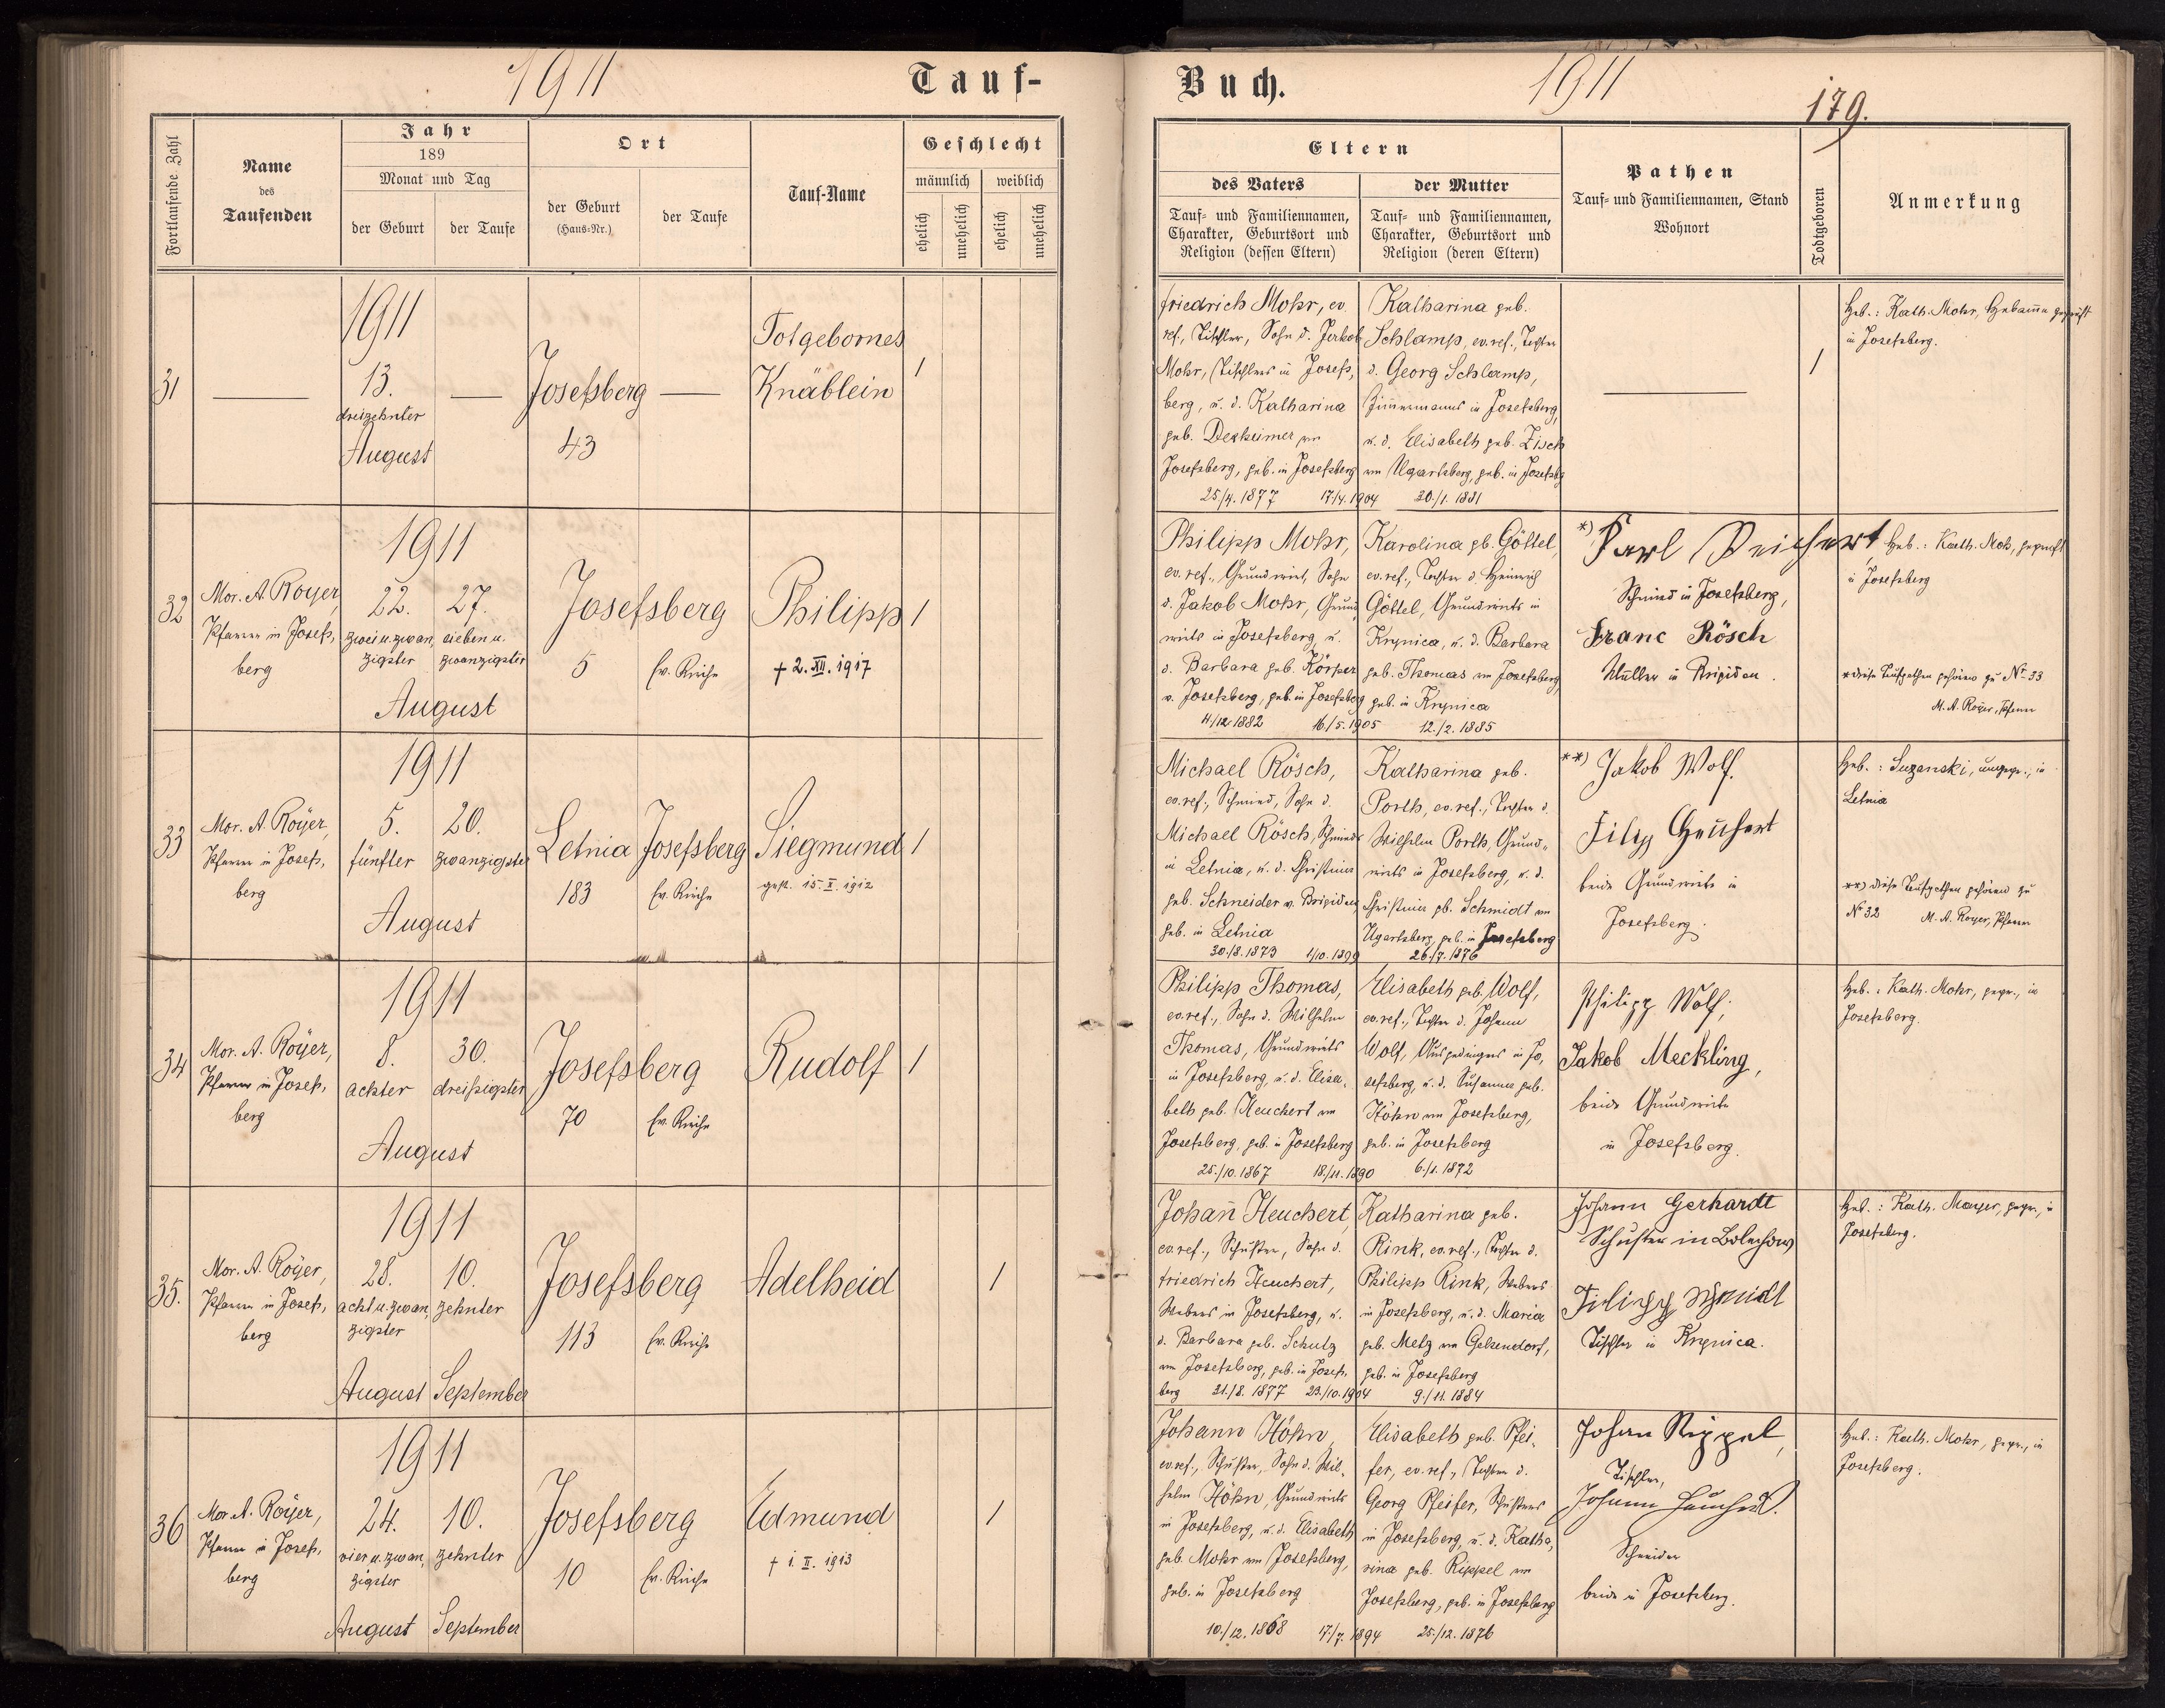 1911
Tauf-
Fortlaufende Zahl
Name
des
Taufenden
Jahr
189
Monat und Tag
der Geburt
der Taufe
Ort
der Geburt
(Haus-Nr.)
der Taufe
Tauf-Name
Geschlecht
männlich
weiblich
ehelich
unehelich
ehelich
unehelich
31
1911
13.
dreizehnter
August
Josefsberg
43
Totgebornes
Knäblein
1
32
Mor. A. Royer,
Pfarrer in Josefs,
berg
1911
22. 27.
zwei u. zwan, sieben u.
zigster zwanzigster
August
Josefsberg
5 Ev. Kirche
Philipp
+ 2. XII. 1917
1
33
Mor. A. Royer,
Pfarrer in Josefs,
berg
1911
5. 20.
fünfter zwanzigster
August
Letnia Josefsberg
183 Ev. Kirche
Siegmund
gest. 15. X. 1912
1
34
Mor. A. Royer,
Pfarrer in Josefs,
berg
1911
8. 30.
achter dreißigster
August
Josefsberg
70 Ev. Kirche
Rudolf
1
35.
Mor. A. Royer,
Pfarrer in Josefs,
berg
1911
28. 10.
acht u. zwan, zehnter
zigster
August September
Josefsberg
113 Ev. Kirche
Adelheid
1
36
Mor. A. Royer,
Pfarrer in Josefs,
berg
1911
24. 10.
vier u. zwan, zehnter
zigster
August September
Josefsberg
10 Ev. Kirche
Edmund
+ 1. II. 1913
1
Buch.
1911
179.
Eltern
des Vaters
Tauf- und Familiennamen,
Charakter, Geburtsort und
Religion (dessen Eltern)
der Mutter
Tauf- und Familiennamen,
Charakter, Geburtsort und
Religion (deren Eltern)
Pathen
Tauf- und Familiennamen, Stand
Wohnort
Todtgeboren
Anmerkung
Friedrich Mohr, ev.
ref., Tischler, Sohn d. Jakob
Mohr, Tischlers in Josefs,
berg, u. d. Katharina
geb. Dexheimer von
Josefsberg, geb. in Josefsberg
25/4. 1877 17/4. 1904
Katharina geb.
Schlamp, ev. ref., Tochter
d. Georg Schlamp,
Zimmermanns in Josefsberg,
u. d. Elisabeth geb. Zisch
von Ugartsberg, geb. in Josefsbg
30./1. 1881
1
Heb.: Kath. Mohr, Hebamme geprüft
in Josefsberg.
Philipp Mohr,
ev. ref., Grundwirt, Sohn
d. Jakob Mohr, Grund
wirts in Josefsberg, u.
d. Barbara geb. Körper
v. Josefsberg, geb. in Josefsberg
4/12 1882 16/5. 1905
Karolina gb. Göttel,
ev. ref., Tochter d. Heinrich
Göttel, Grundwirts in
Krynica, u. d. Barbara
geb. Thomas von Josefsberg,
geb. in Krynica
12./2. 1885
*) Karl Reichert
Schmied in Josefsberg,
Franc Rösch
Müller in Brigidau.
Heb.: Kath. Mohr, geprüft
in Josefsberg
* diese Taufpathen gehören zu No 33
M. A. Royer, Pfarrer
Michael Rösch,
ev. ref., Schmied, Sohn d.
Michael Rösch, Schmieds
in Letnia, u. d. Christina
geb. Schneider v. Brigidau,
geb. in Letnia
30./8. 1873 1/10. 1899
Katharina geb.
Porth, ev. ref., Tochter d.
Wilhelm Porth, Grund„
wirts in Josefsberg, u. d.
Christina gb. Schmidt von
Ugartsberg, geb. in Josefsberg
26./7. 1876
**) Jakob Wolf,
Filipp Heuchert
beide Grundwirte in
Josefsberg.
Heb.: Suzanski, ungepr., in
Letnia
**) diese Taufpathen gehören zu
No 32 M. A. Royer, Pfarrer
Philipp Thomas,
ev. ref., Sohn d. Wilhelm
Thomas, Grundwirts
in Josefsberg, u. d. Elisa,
beth geb. Heuchert von
Josefsberg, geb. in Josefsberg
25./10. 1867 18./11. 1890
Elisabeth geb. Wolf,
ev. ref., Tochter d. Johann
Wolf, Ausgedingers in Jo,
sefsberg, u. d. Susanna geb.
Höhn von Josefsberg,
geb. in Josefsberg
6./1. 1872
Philipp Wolf,
Jakob Meckling,
beide Grundwirte
in Josefsberg.
Heb.: Kath. Mohr, gepr., in
Josefsberg.
Johann Heuchert,
ev. ref., Schuster, Sohn d.
Friedrich Heuchert,
Webers in Josefsberg, u.
d. Barbara geb. Schulz
von Josefsberg, geb. in Josefs,
berg 21./8. 1877 23./10. 1904
Katharina geb.
Rink, ev. ref., Tochter d.
Philipp Rink, Webers
in Josefsberg, u. d. Maria
geb. Metz von Gelsendorf,
geb. in Josefsberg
9./11. 1884
Johann Gerhardt
Schuster in Bolechow
Filipp Schmidt
Tischler in Krynica.
Heb.: Kath. Mayer, gepr., in
Josefsberg.
Johann Höhn,
ev. ref., Schuster, Sohn d. Wil,
helm Höhn, Grundwirts
in Josefsberg, u. d. Elisabeth
geb. Mohr von Josefsberg,
geb. in Josefsberg
10./12. 1868 17./7. 1894
Elisabeth geb. Pfei,
fer, ev. ref., Tochter d.
Georg Pfeifer, Schusters
in Josefsberg, u. d. Katha,
rina geb. Rippel von
Josefsberg, geb. in Josefsberg
25./12. 1876
Johan Rippel,
Tischler,
Johann Heuchert.
Schneider
beide in Josefsberg.
Heb.: Kath. Mohr, gepr., in
Josefsberg.